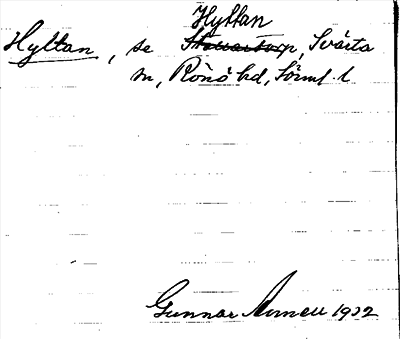 Hyltan
Hyltan, se Stuvartorp, Svärta
sn, Rönö hd, Sörml. l
Gunnar Linnell 1932